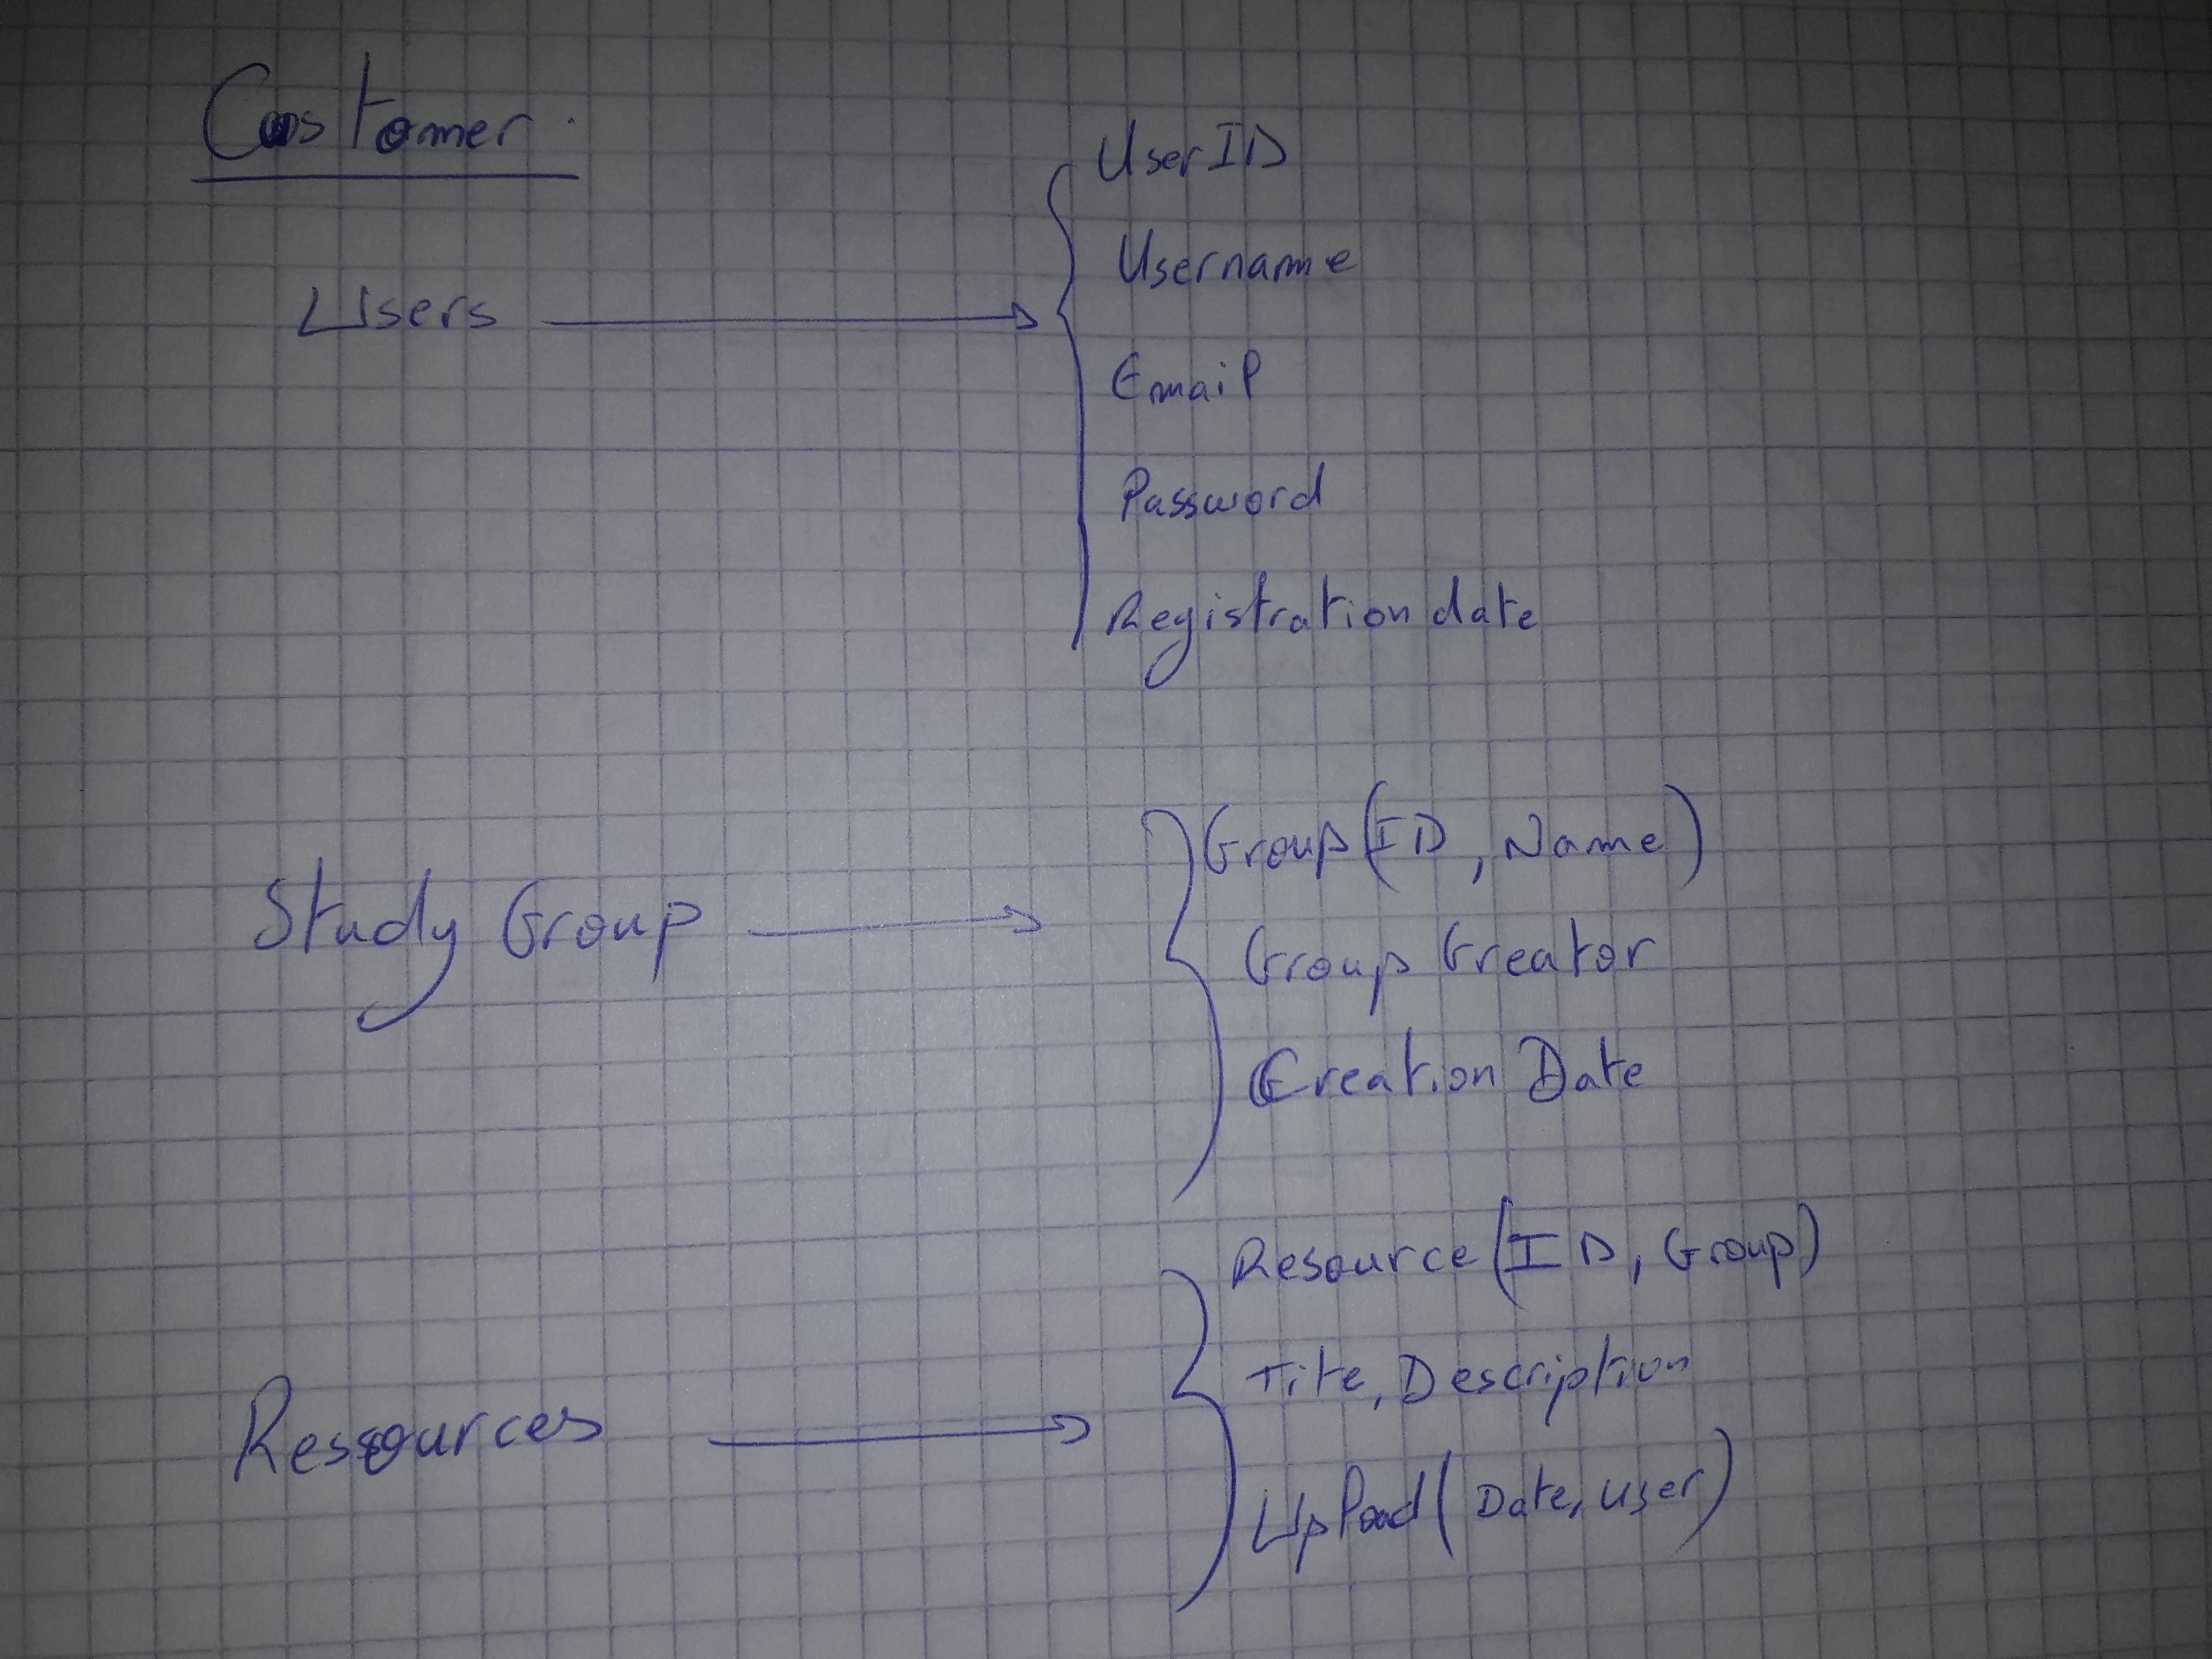 Customer
Users
UserID
Username
Email
Password
Registration date
Study Group
Group (ID, Name)
Group Greator
Creation Date
Resources
Resource (ID, Group)
Tite, Description
Upload (Date, user)